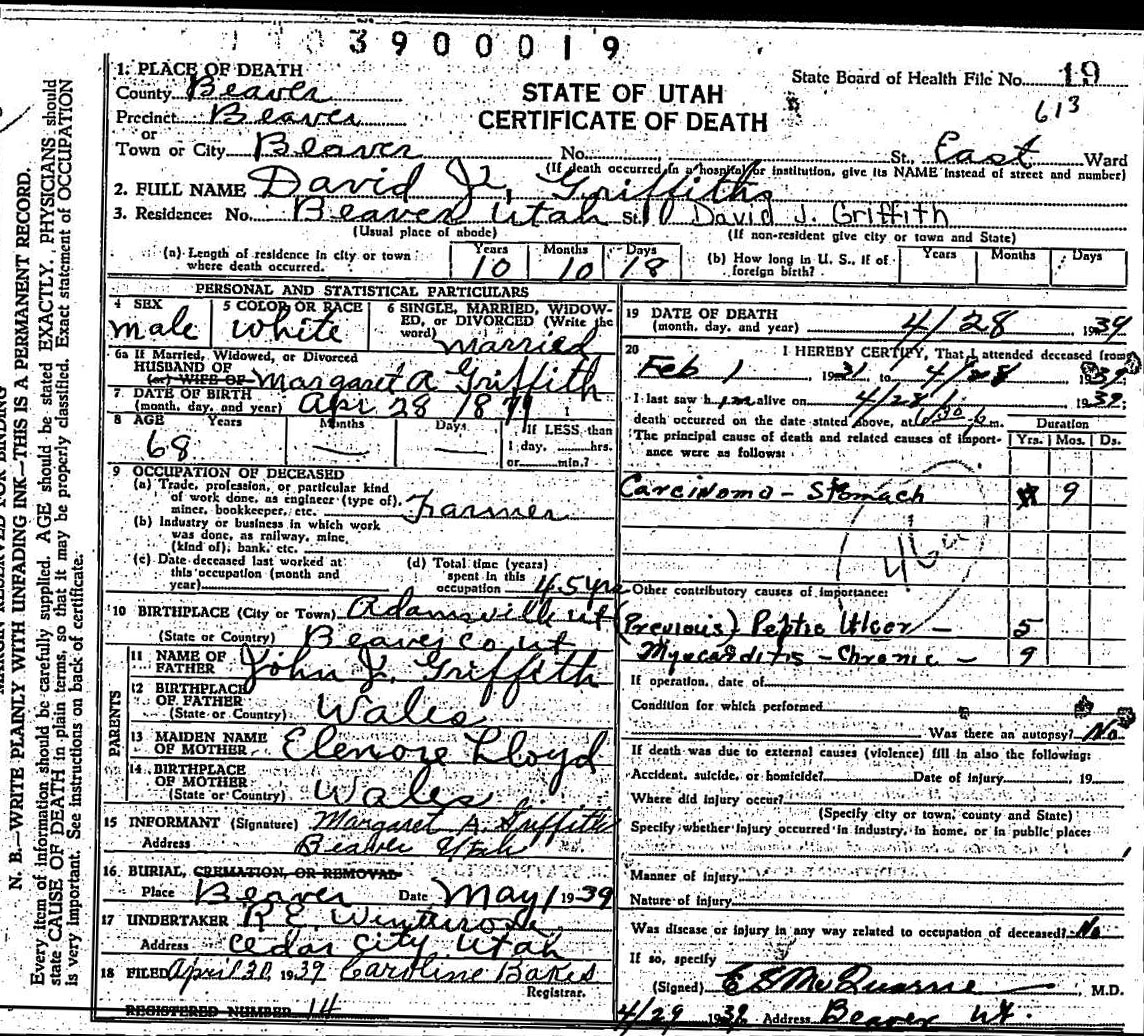 3900019
1. PLACE OF DEATH
State Board of Health File No. 19
County Beaver
STATE OF UTAH
613
Precinct Beaver
CERTIFICATE OF DEATH
or
Town or City Beaver No. St., East Ward
(If death occurred in a hospital or institution, give its NAME instead of street and number)
2. FULL NAME David J. Griffiths
3. Residence: No. Beaver Utah St. David J. Griffith
(Usual place of abode) (If non-resident give city or town and State)
(a) Length of residence in city or town where death occurred. Years 10 Months 10 Days 18 (b) How long in U. S., if of foreign birth? Years Months Days
PERSONAL AND STATISTICAL PARTICULARS
4 SEX male
5 COLOR OR RACE White
6 SINGLE, MARRIED, WIDOWED, or DIVORCED (Write the word) married
6a If Married, Widowed, or Divorced
HUSBAND OF
(or) WIFE OF Margaret A Griffith
7 DATE OF BIRTH
(month, day, and year) Apr 28 1871
8 AGE Years 68 Months — Days — If LESS than
1 day, hrs.
or min.?
9 OCCUPATION OF DECEASED
(a) Trade, profession, or particular kind
of work done, as engineer (type of),
miner, bookkeeper, etc. Farmer
(b) Industry or business in which work
was done, as railway, mine,
(kind of); bank, etc.
(c) Date deceased last worked at
this occupation (month and
year)
(d) Total time (years)
spent in this
occupation 45 yrs
10 BIRTHPLACE (City or Town) Adamsville ut
(State or Country) Beaver co ut
PARENTS
11 NAME OF
FATHER John J. Griffith
12 BIRTHPLACE
OF FATHER
(State or Country) Wales
13 MAIDEN NAME
OF MOTHER Elenore Lloyd
14 BIRTHPLACE
OF MOTHER
(State or Country) Wales
15 INFORMANT (Signature) Margaret A. Griffiths
Address Beaver Utah
16 BURIAL, CREMATION, OR REMOVAL
Place Beaver Date May 1 1939
17 UNDERTAKER R.E.
Address Cedar City Utah
18 FILED April 30, 1939 Caroline
Registrar.
REGISTERED NUMBER 14
19 DATE OF DEATH
(month, day, and year) 4/28 1939
20 I HEREBY CERTIFY, That I attended deceased from
Feb 1 1931 to 4/28 1939
I last saw him alive on 4/28 1939;
death occurred on the date stated above, at m.
The principal cause of death and related causes of importance were as follows: Duration
Yrs. Mos. Ds.
Carcinoma - Stomach 9
Other contributory causes of importance:
(Previous) Peptic Ulcer - 5
Myocarditis - Chronic - 9
If operation, date of
Condition for which performed
Was there an autopsy? No
If death was due to external causes (violence) fill in also the following:
Accident, suicide, or homicide? Date of injury 19
Where did injury occur?
(Specify city or town, county and State)
Specify whether injury occurred in industry, in home, or in public place:
Manner of injury
Nature of injury
Was disease or injury in any way related to occupation of deceased? No
If so, specify
(Signed) E S McQuarrie, M.D.
4/29 1939 Address Beaver Ut.
MARGIN RESERVED FOR BINDING
N. B.—WRITE PLAINLY WITH UNFADING INK—THIS IS A PERMANENT RECORD.
Every item of information should be carefully supplied. AGE should be stated EXACTLY. PHYSICIANS should
state CAUSE OF DEATH in plain terms, so that it may be properly classified. Exact statement of OCCUPATION
is very important. See instructions on back of certificate.